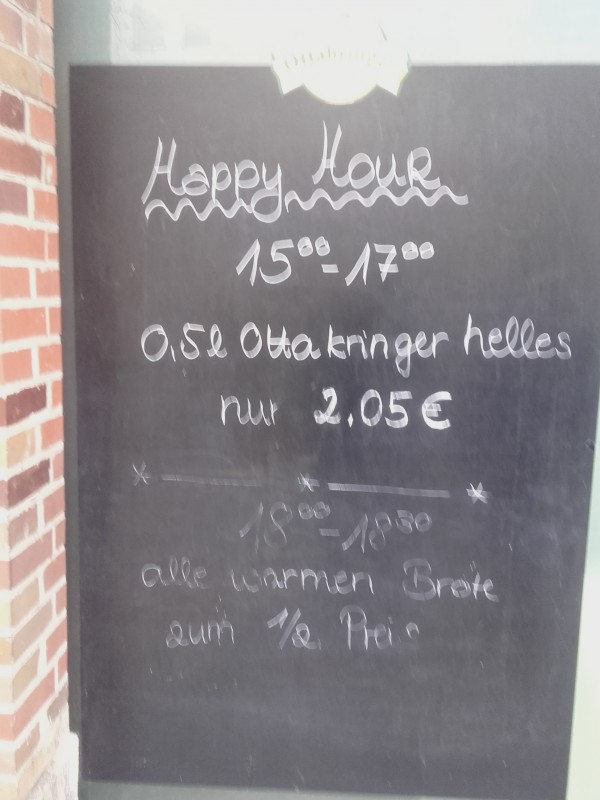 Ottakringer
Happy Hour
15⁰⁰-17⁰⁰
0,5l Ottakringer helles
nur 2.05€
18⁰⁰-18³⁰
alle warmen Brote
zum 1/2 Preis